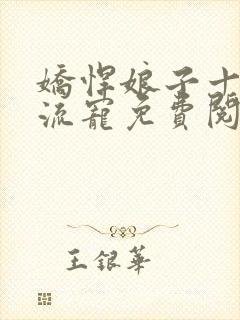 嬌悍娘子十
流寵免費閱
王銀華